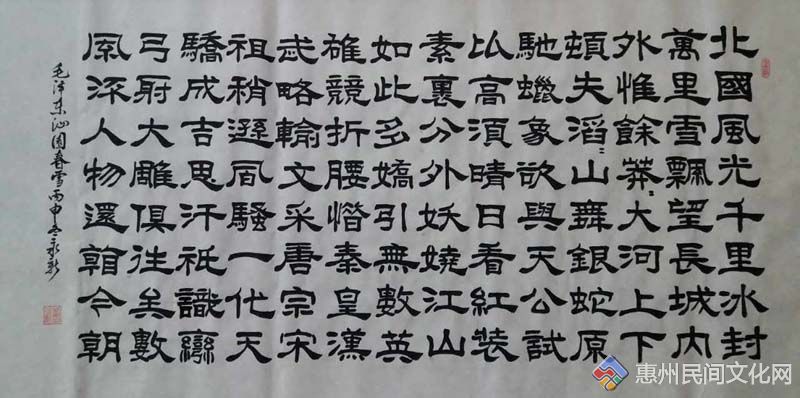 北國風光千里冰封
萬里雪飄望長城内
外惟餘莽〻大河上下
頓失滔〻山舞銀蛇原
馳蠟象欲與天公試
比高須晴日看紅裝
素裹分外妖嬈江山
如此多嬌引無數英
雄競折腰惜秦皇漢
武略輸文采唐宗宋
祖稍遜風騷一代天
驕成吉思汗祗識彎
弓射大雕俱往矣數
風流人物還看今朝
毛泽東沁園春雪丙申冬永新
惠州民间文化网